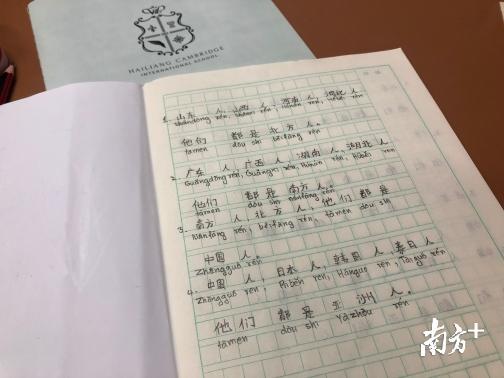 HAILIANG CAMBRIDGE
INTERNATIONAL SCHOOL
1. 山东 人, 山西 人, 河南 人, 河北 人
shāndōng rén, shānxī rén, hénán rén, héběi rén
他们 都 是 北 方 人。
tāmen dōu shì běifāng rén
2. 广东 人, 广西 人, 湖南 人, 湖北 人
Guǎngdōng rén, Guǎngxī rén, Húnán rén, Húběi rén
他们 都 是 南方 人。
tāmen dōu shì nánfāng rén
3. 南方 人, 北方 人, 他们 都是
Nánfāng rén, běifāng rén, tāmen dōu shì
中国 人。
Zhōngguó rén
4. 中国 人, 日本 人, 韩国 人, 人
Zhōngguó rén, Rìběn rén, Hánguó rén, Tàiguó rén
他们 都 是 亚 洲 人。
tāmen dōu shì Yàzhōu rén
南方+